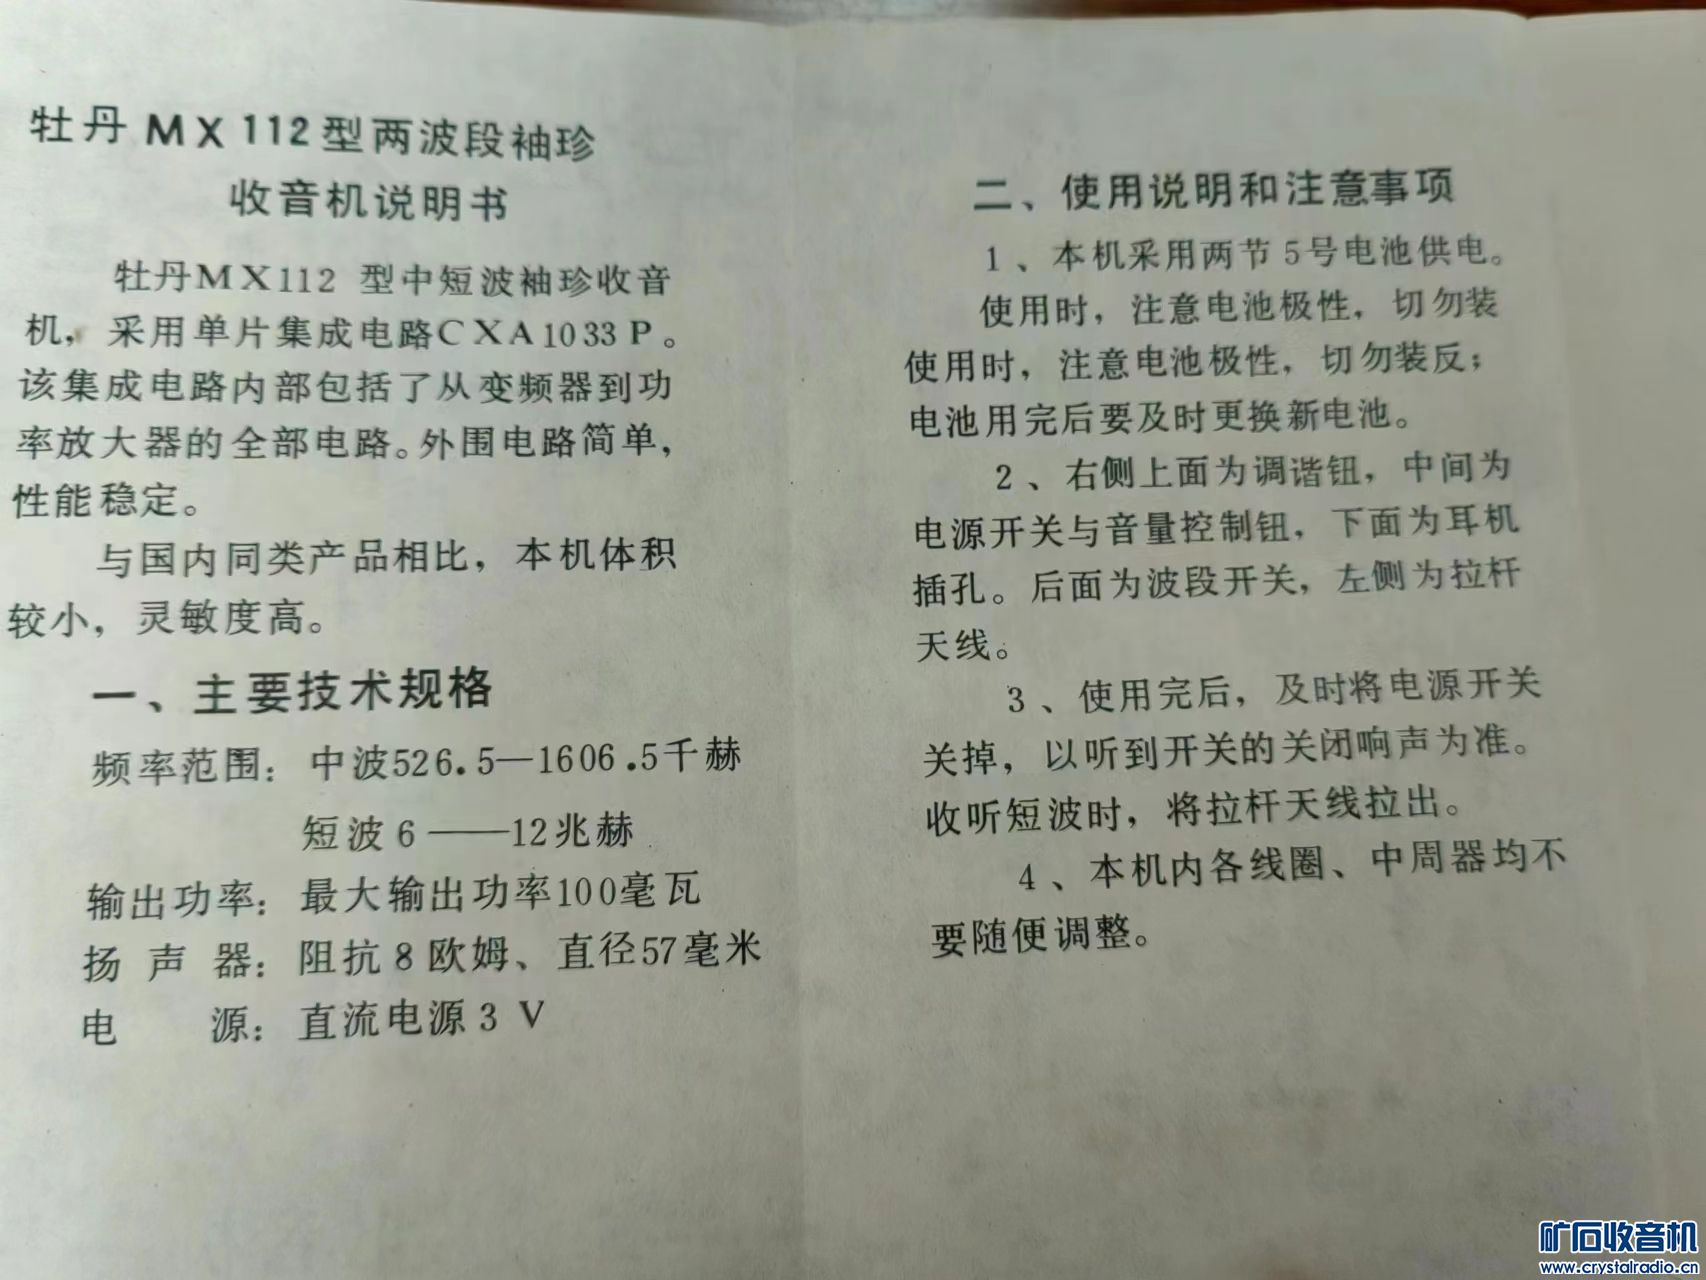 牡丹MX112型两波段袖珍
收音机说明书
牡丹MX112 型中短波袖珍收音
机，采用单片集成电路CXA1033P。
该集成电路内部包括了从变频器到功
率放大器的全部电路。外围电路简单，
性能稳定。
与国内同类产品相比，本机体积
较小，灵敏度高。
一、主要技术规格
频率范围：中波526.5—1606.5千赫
短波6——12兆赫
输出功率：最大输出功率100毫瓦
扬声器：阻抗8欧姆、直径57毫米
电源：直流电源3V
二、使用说明和注意事项
1、本机采用两节5号电池供电。
使用时，注意电池极性，切勿装
使用时，注意电池极性，切勿装反；
电池用完后要及时更换新电池。
2、右侧上面为调谐钮，中间为
电源开关与音量控制钮，下面为耳机
插孔。后面为波段开关，左侧为拉杆
天线。
3、使用完后，及时将电源开关
关掉，以听到开关的关闭响声为准。
收听短波时，将拉杆天线拉出。
4、本机内各线圈、中周器均不
要随便调整。
矿石收音机
www.crystalradio.cn